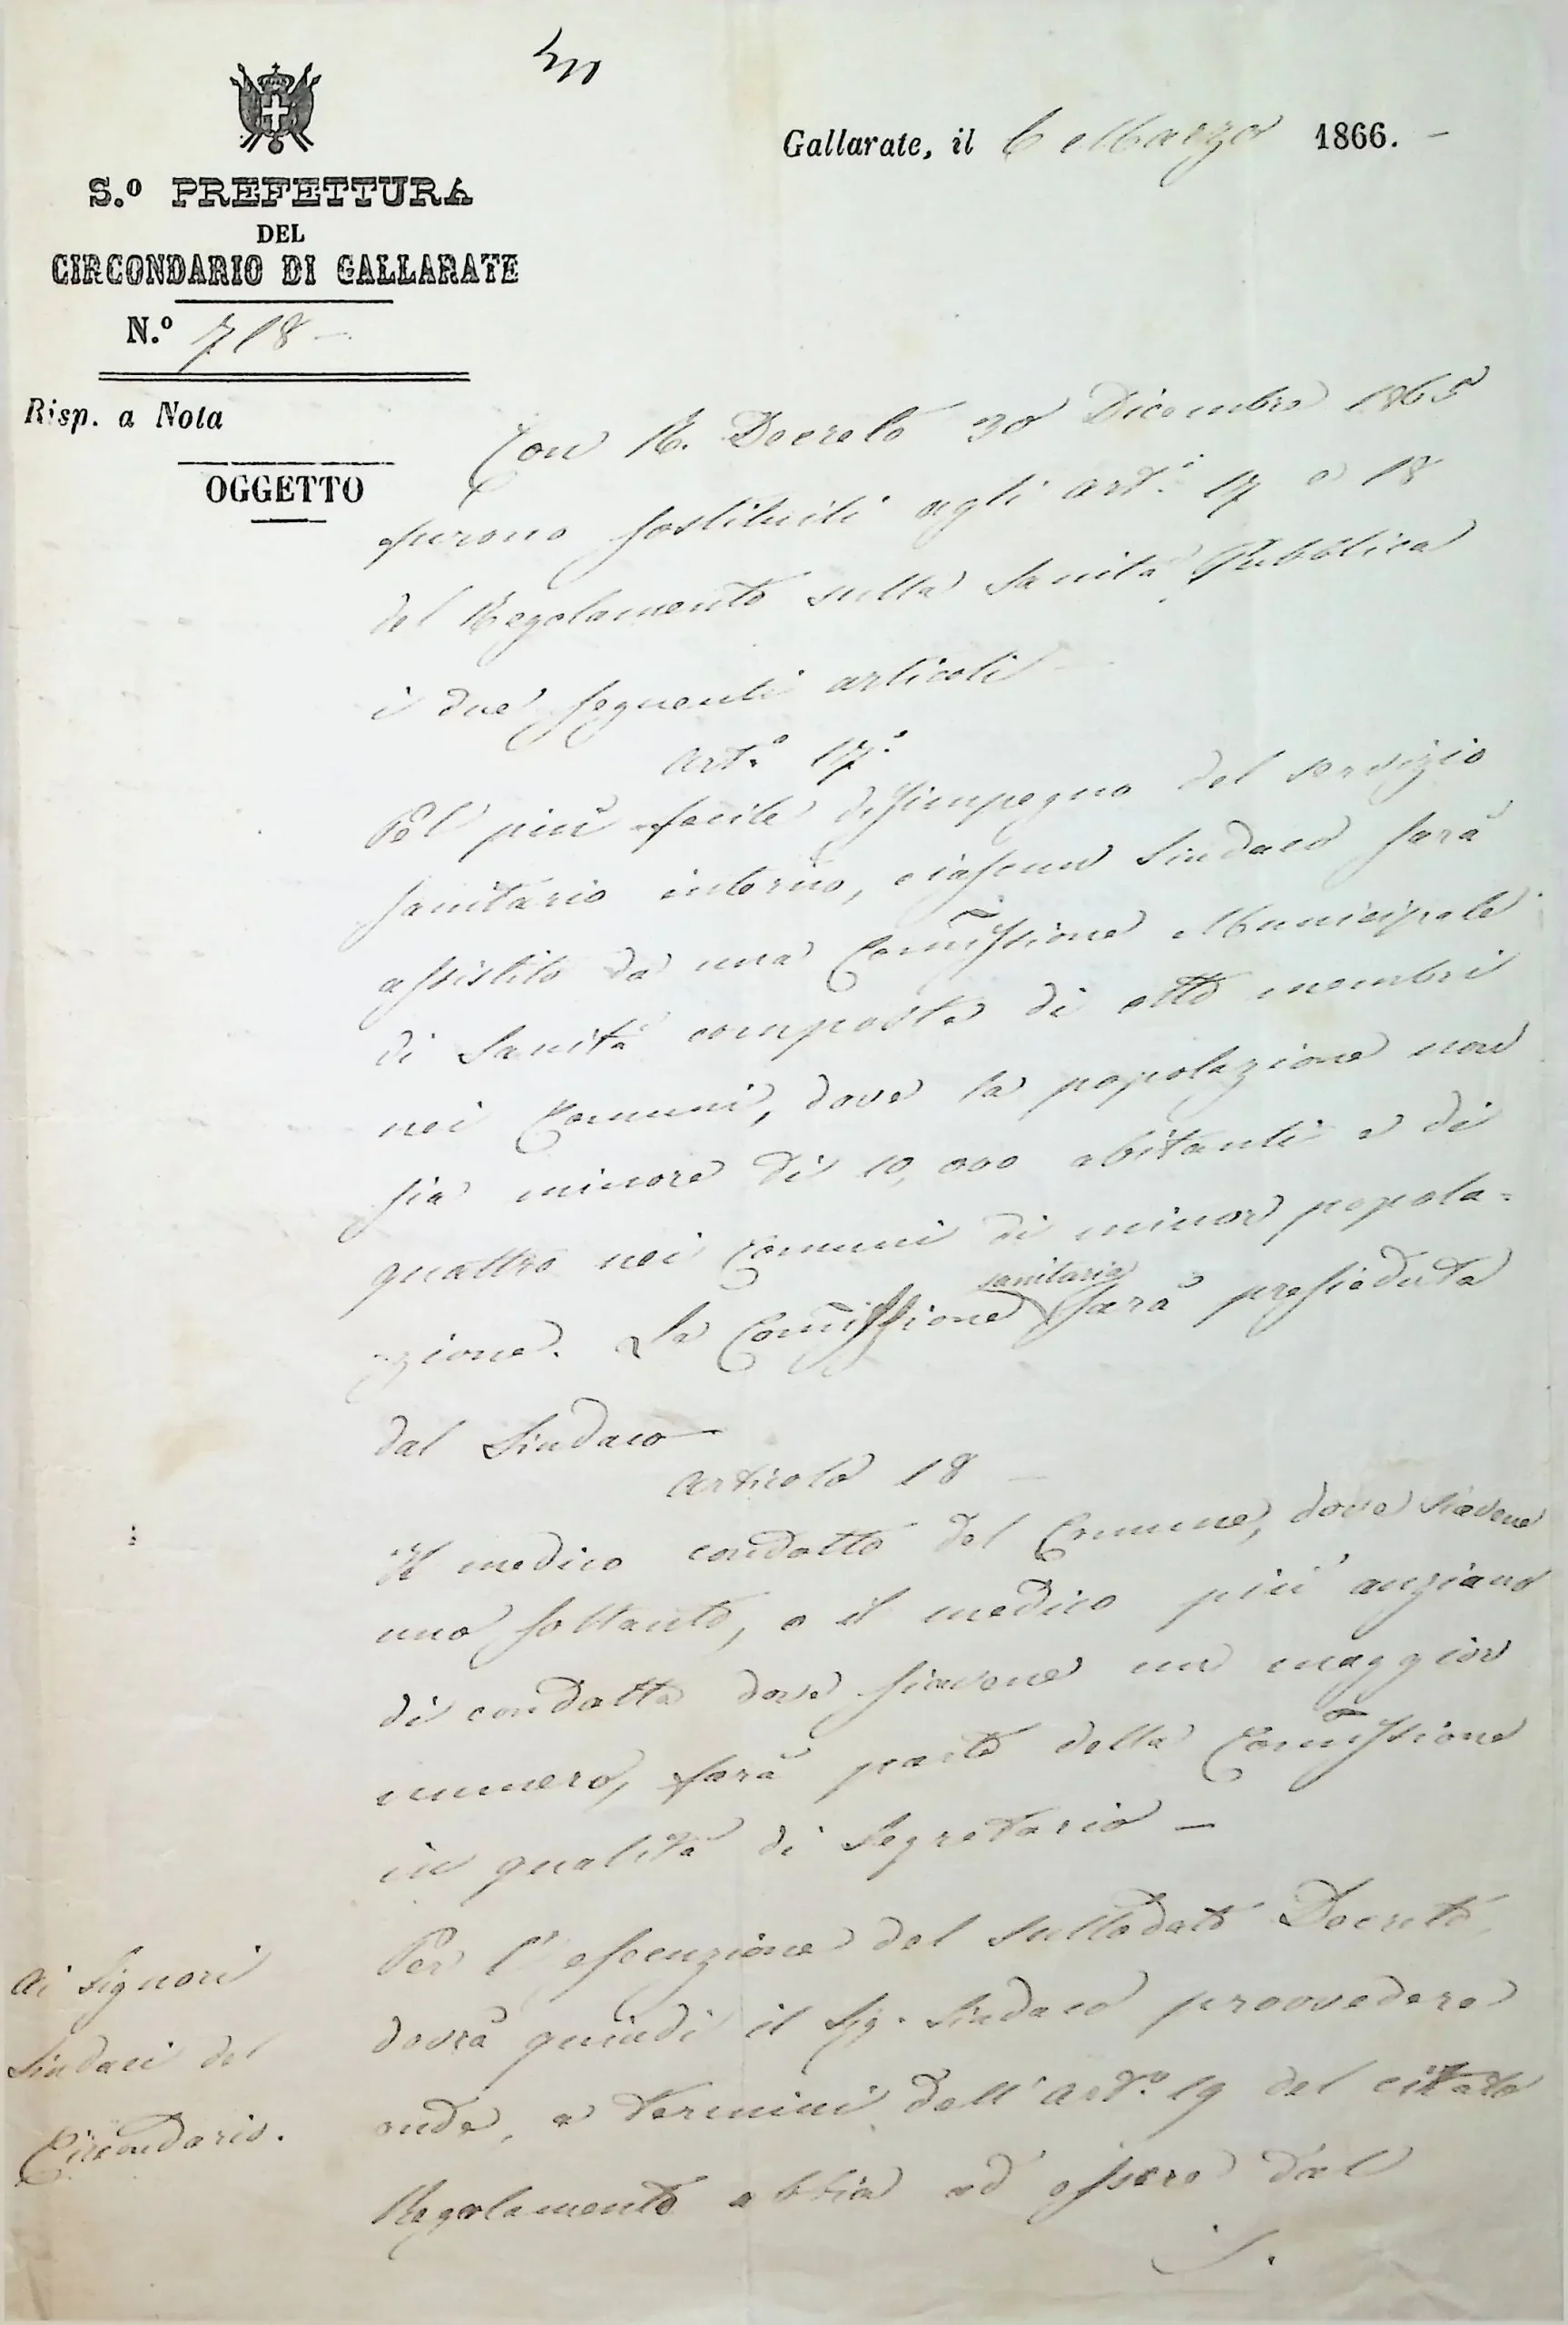 Gallarate, il 6 Marzo 1866. -
S.º PREFETTURA
DEL
CIRCONDARIO DI GALLARATE
N.º 718 -
Risp. a Nota
OGGETTO
Con R. Decreto 30 Dicembre 1865
furono sostituiti agli art.i 17 e 18
del Regolamento sulla Sanità Pubblica
i due seguenti articoli -
Art.º 17.º
Pel più facile disimpegno del servizio
sanitario interno, ciascun Sindaco sarà
assistito da una Com̃issione Municipale
di Sanità composta di otto membri
nei Comuni, dove la popolazione non
sia minore di 10,000 abitanti e di
quattro nei Comuni di minor popola=
zione. La Com̃issione sanitaria sarà presieduta
dal Sindaco -
Articolo 18 -
Il medico condotto del Comune, dove siavene
uno soltanto, o il medico più anziano
di condotta dove siavene un maggior
numero, farà parte della Com̃issione
in qualità di Segretario -
Per l'esecuzione del sullodato Decreto,
dovrà quindi il Sig. Sindaco provvedere
onde, a termini dell'art.º 19 del citato
Regolamento abbia ad essere dal
Ai Signori
Sindaci del
Circondario.